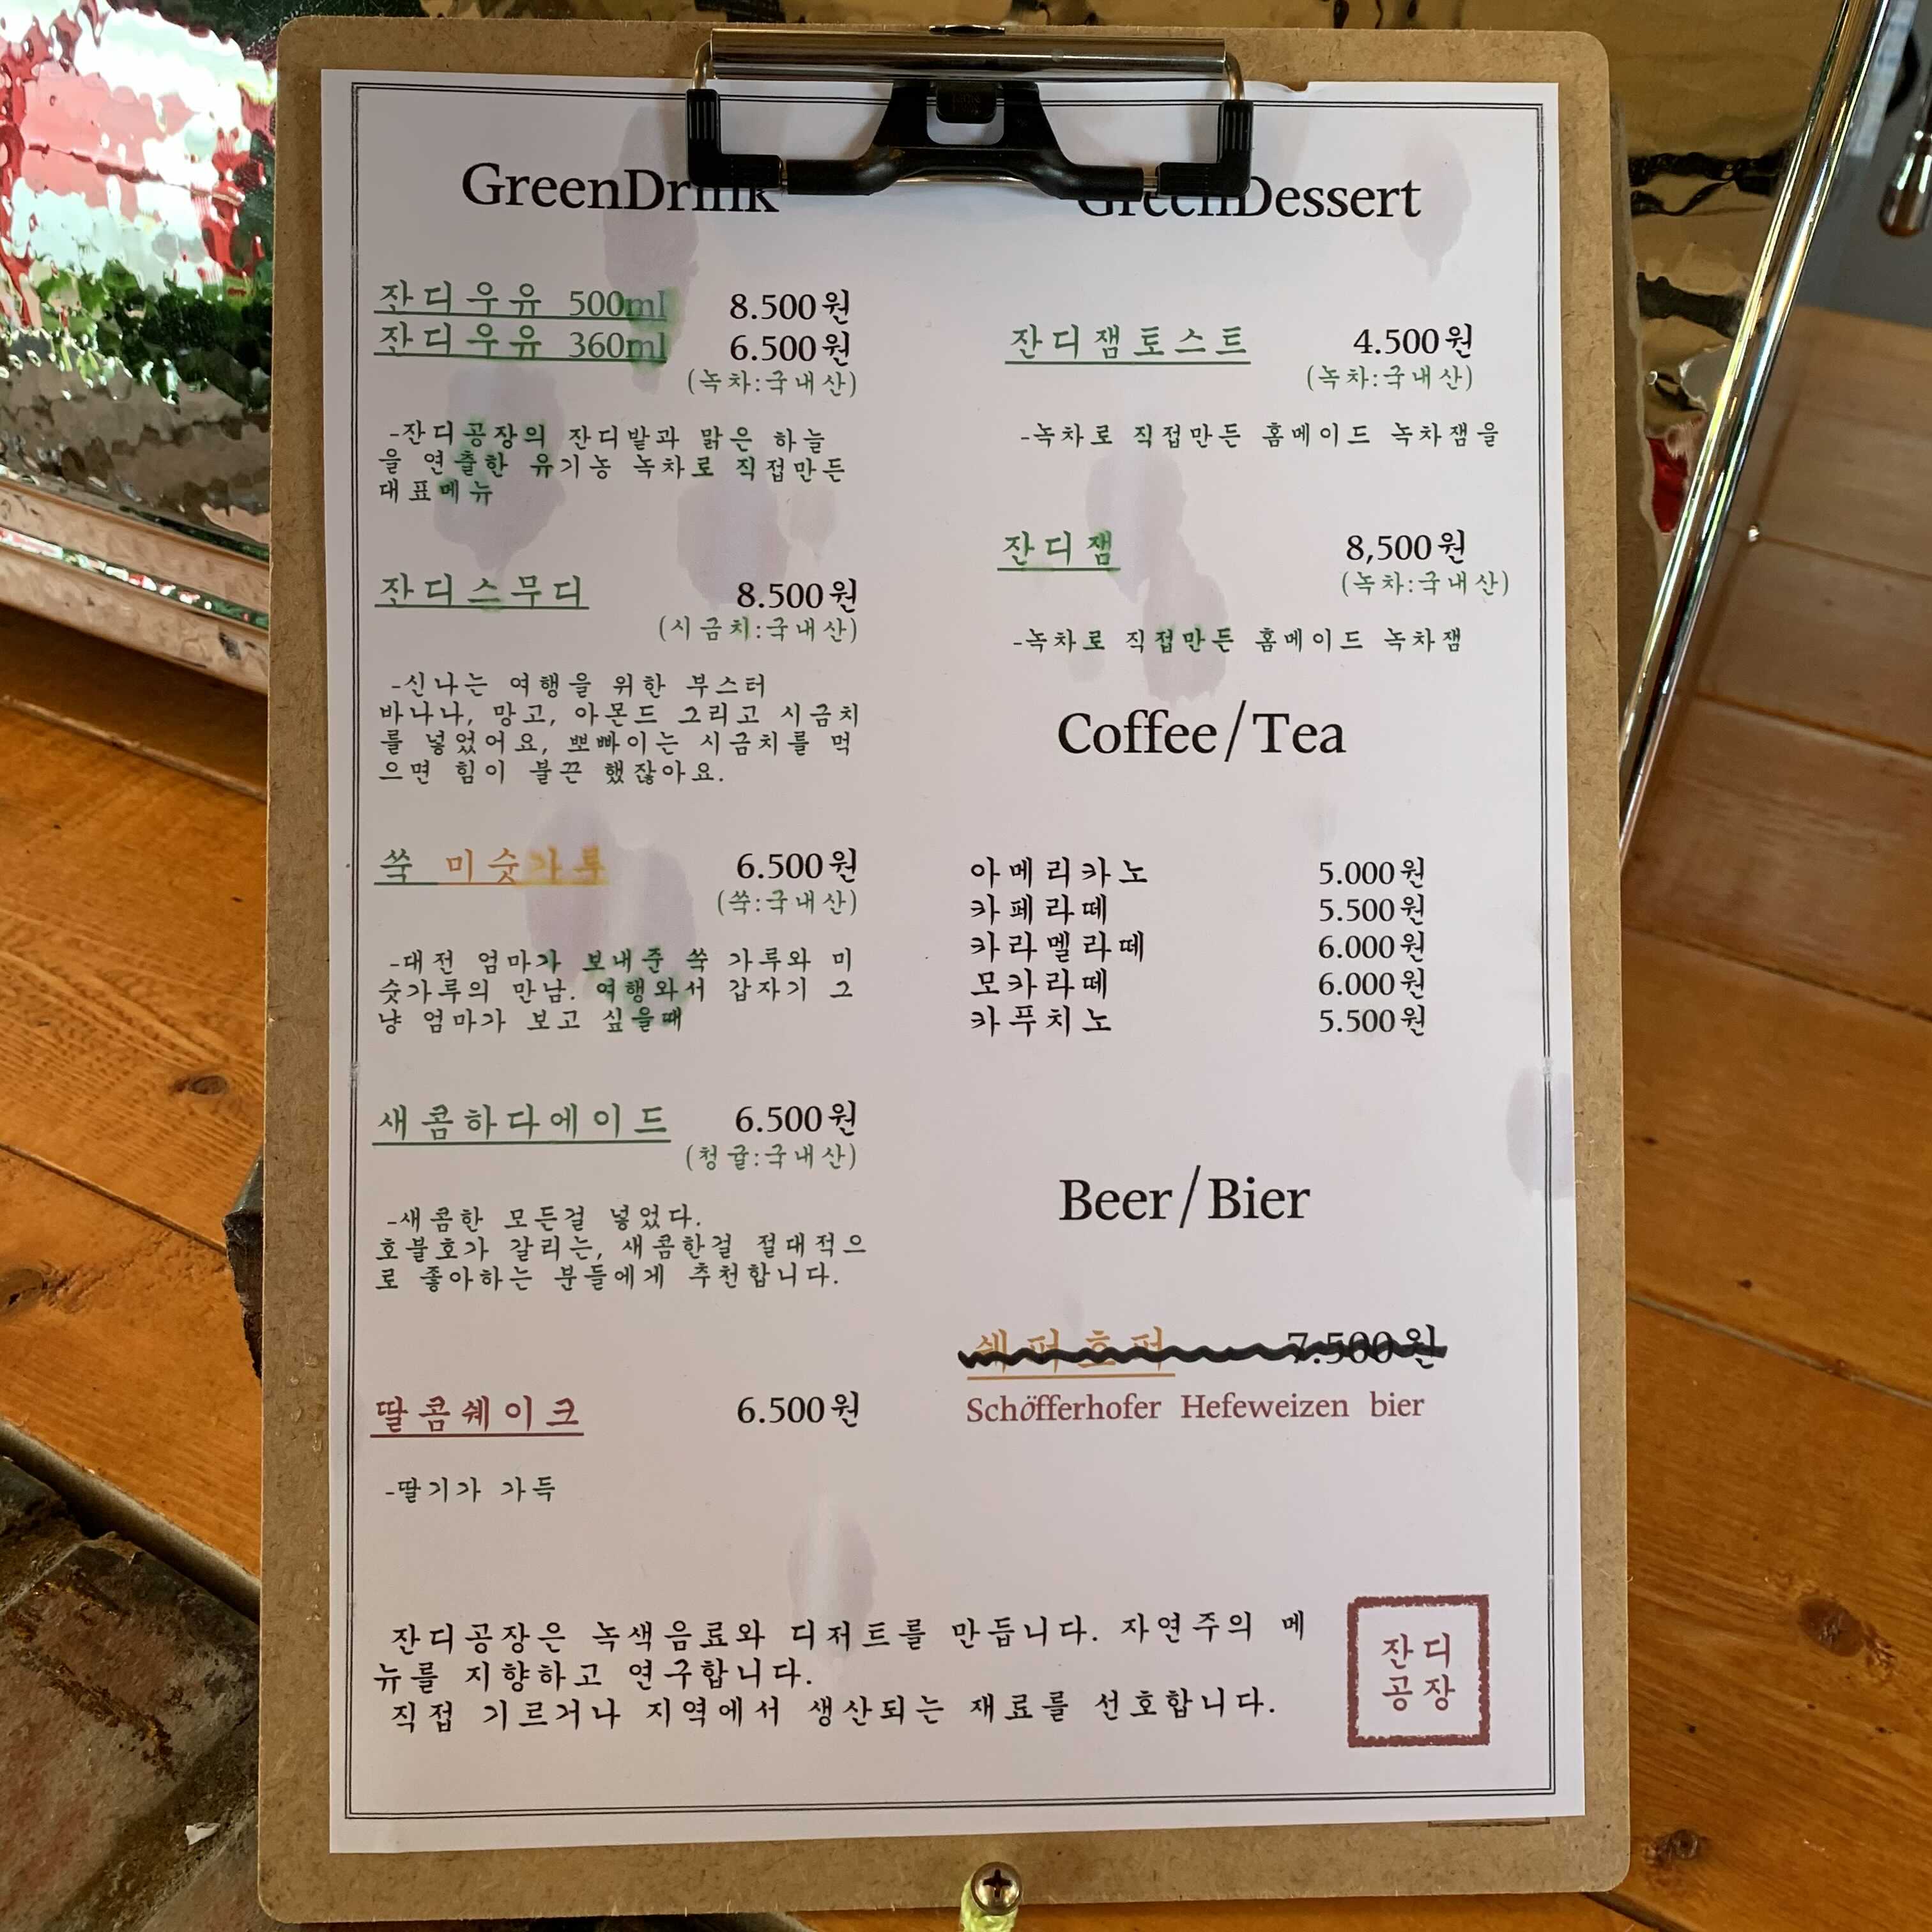 GreenDrink
잔디우유 500ml 8.500원
잔디우유 360ml 6.500원
(녹차:국내산)
-잔디공장의 잔디밭과 맑은 하늘
을 연출한 유기농 녹차로 직접만든
대표메뉴
잔디스무디 8.500원
(시금치:국내산)
-신나는 여행을 위한 부스터
바나나, 망고, 아몬드 그리고 시금치
를 넣었어요, 뽀빠이는 시금치를 먹
으면 힘이 불끈 했잖아요.
쑥 미숫가루 6.500원
(쑥:국내산)
-대전 엄마가 보내준 쑥 가루와 미
숫가루의 만남. 여행와서 갑자기 그
냥 엄마가 보고 싶을때
새콤하다에이드 6.500원
(청귤:국내산)
-새콤한 모든걸 넣었다.
호불호가 갈리는, 새콤한걸 절대적으
로 좋아하는 분들에게 추천합니다.
딸콤쉐이크 6.500원
-딸기가 가득
GreenDessert
잔디잼토스트 4.500원
(녹차:국내산)
-녹차로 직접만든 홈메이드 녹차잼을
잔디잼 8,500원
(녹차:국내산)
-녹차로 직접만든 홈메이드 녹차잼
Coffee/Tea
아메리카노 5.000원
카페라떼 5.500원
카라멜라떼 6.000원
모카라떼 6.000원
카푸치노 5.500원
Beer/Bier
쉐퍼호퍼 7.500원
Schöfferhofer Hefeweizen bier
잔디공장은 녹색음료와 디저트를 만듭니다. 자연주의 메
뉴를 지향하고 연구합니다.
직접 기르거나 지역에서 생산되는 재료를 선호합니다.
잔디
공장